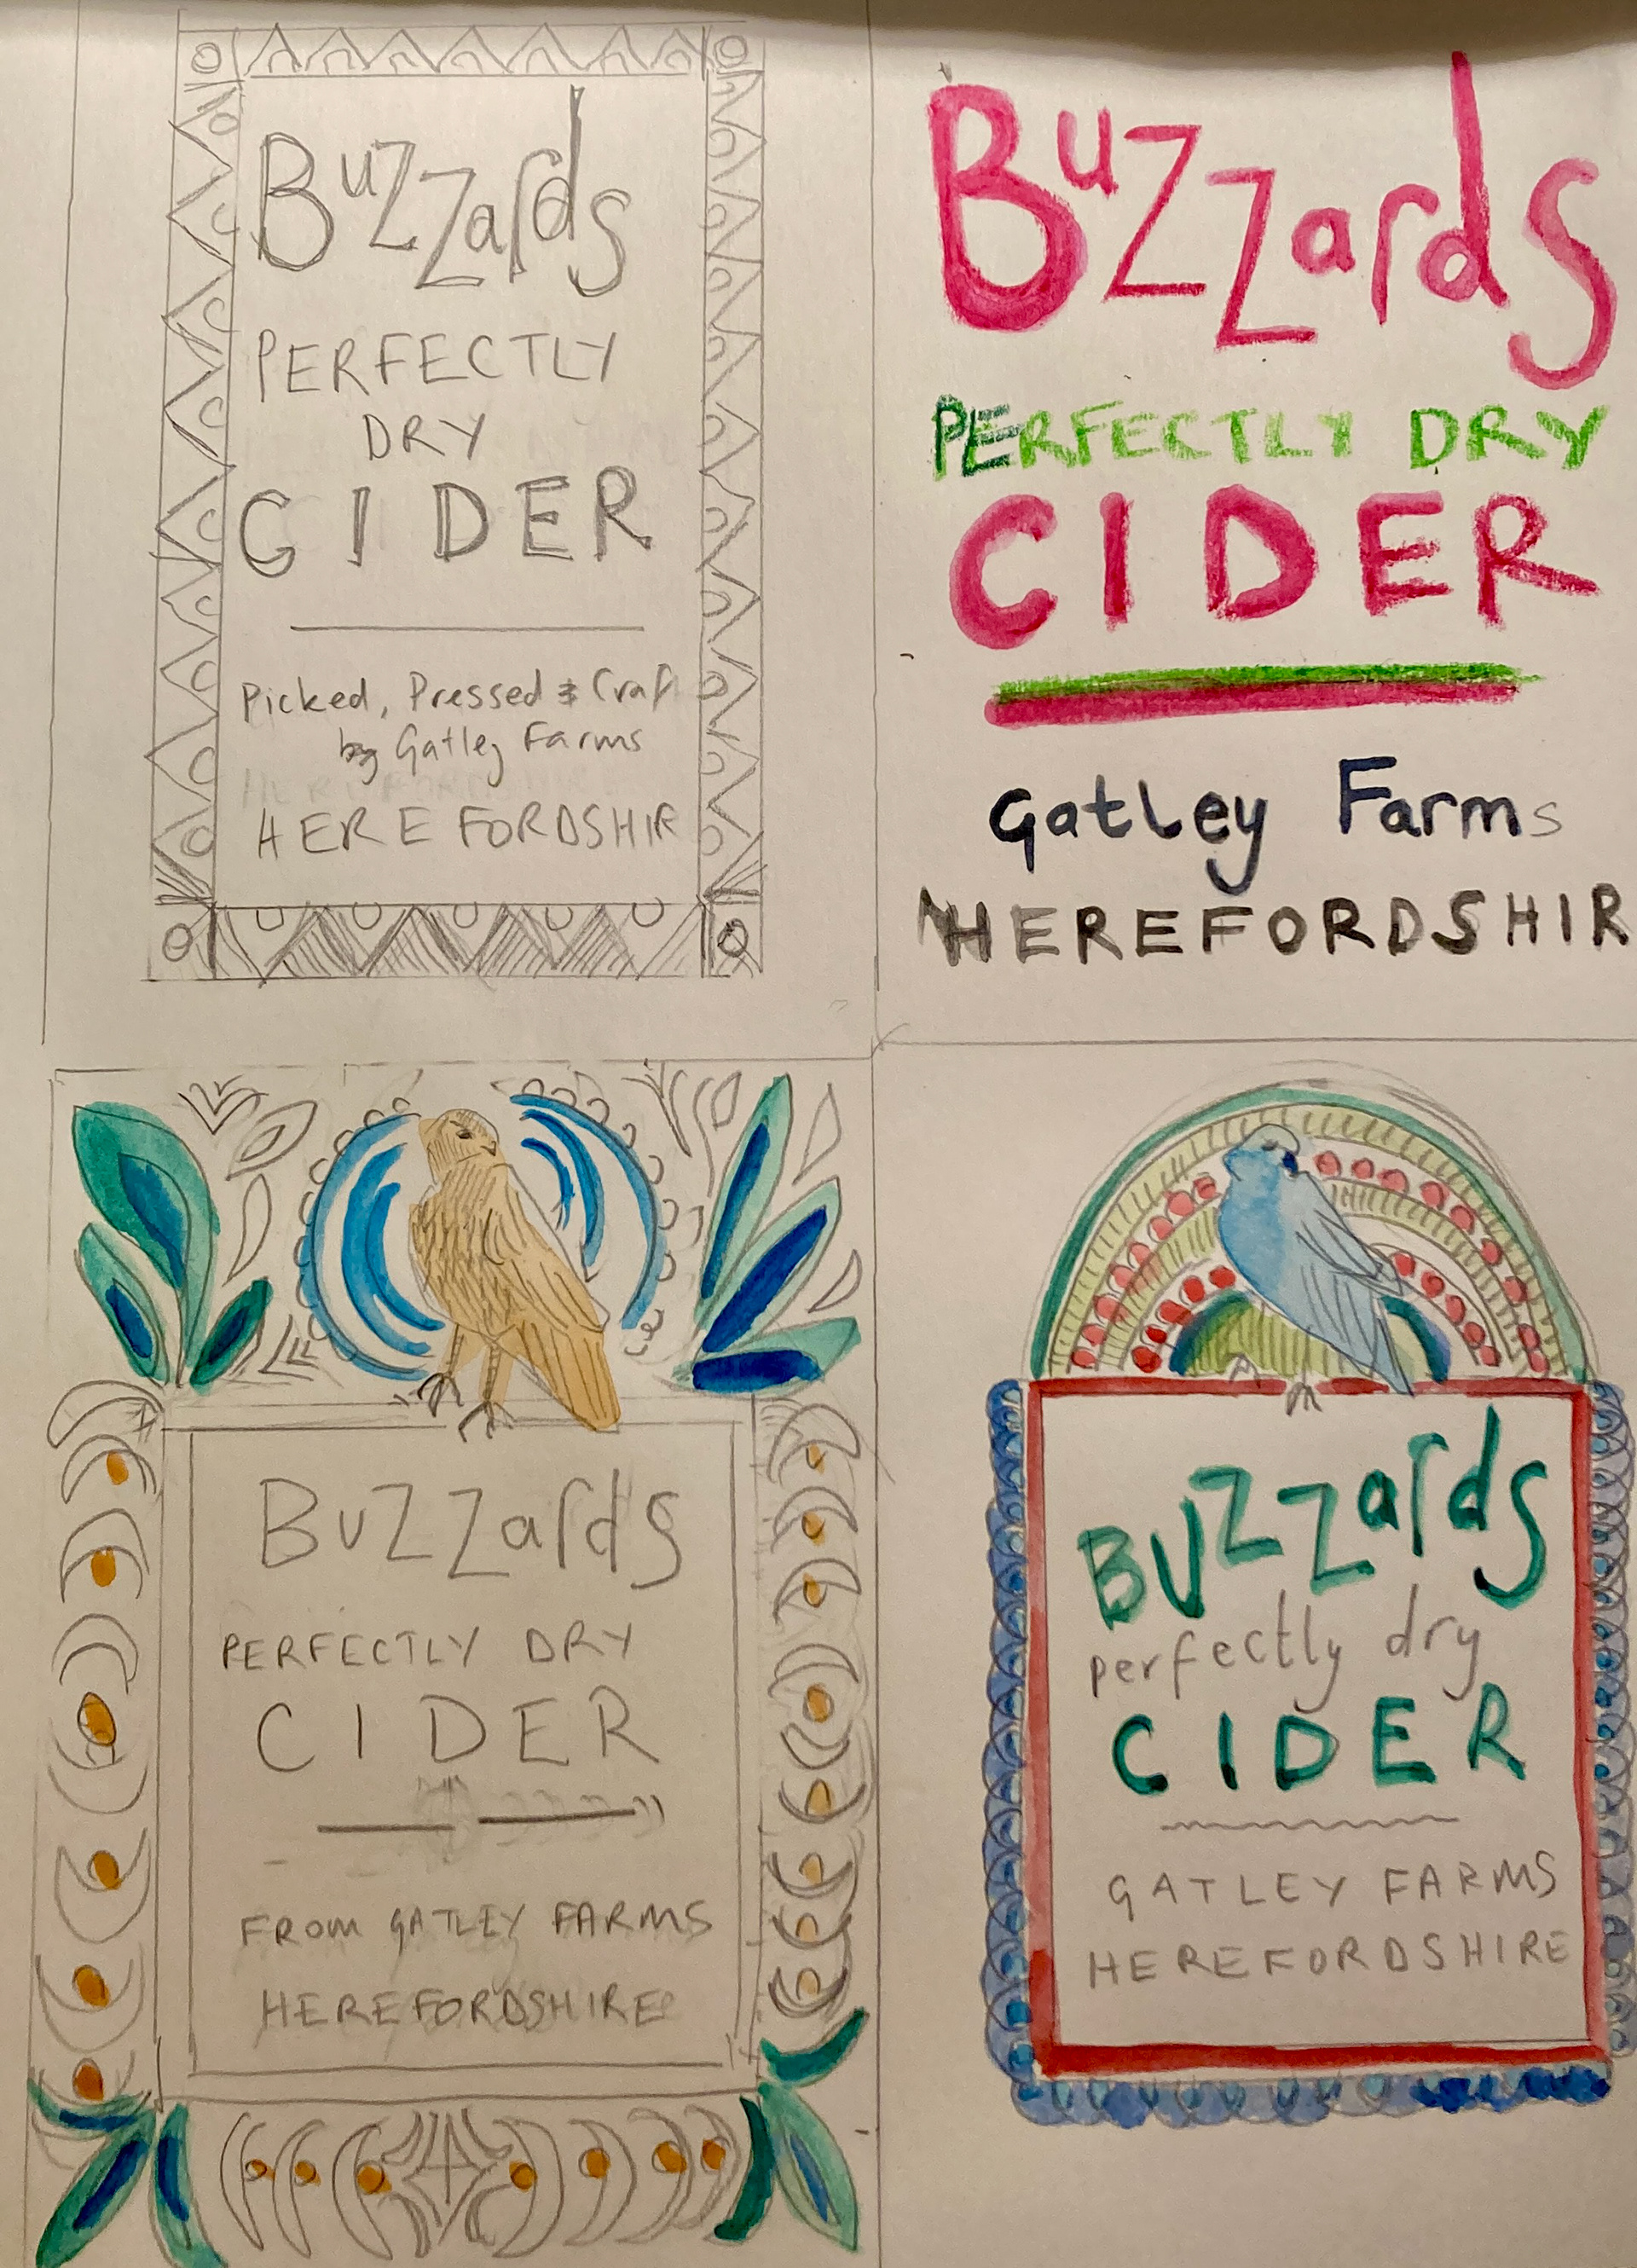 BuZZards
PERFECTLY
DRY
CIDER
Picked, Pressed & Craf
by Gatley Farms
HEREFORDSHIR
BuZZards
PERFECTLY DRY
CIDER
Gatley Farms
HEREFORDSHIR
BuZZards
PERFECTLY DRY
CIDER
FROM GATLEY FARMS
HEREFORDSHIRE
BUZZards
perfectly dry
CIDER
GATLEY FARMS
HEREFORDSHIRE